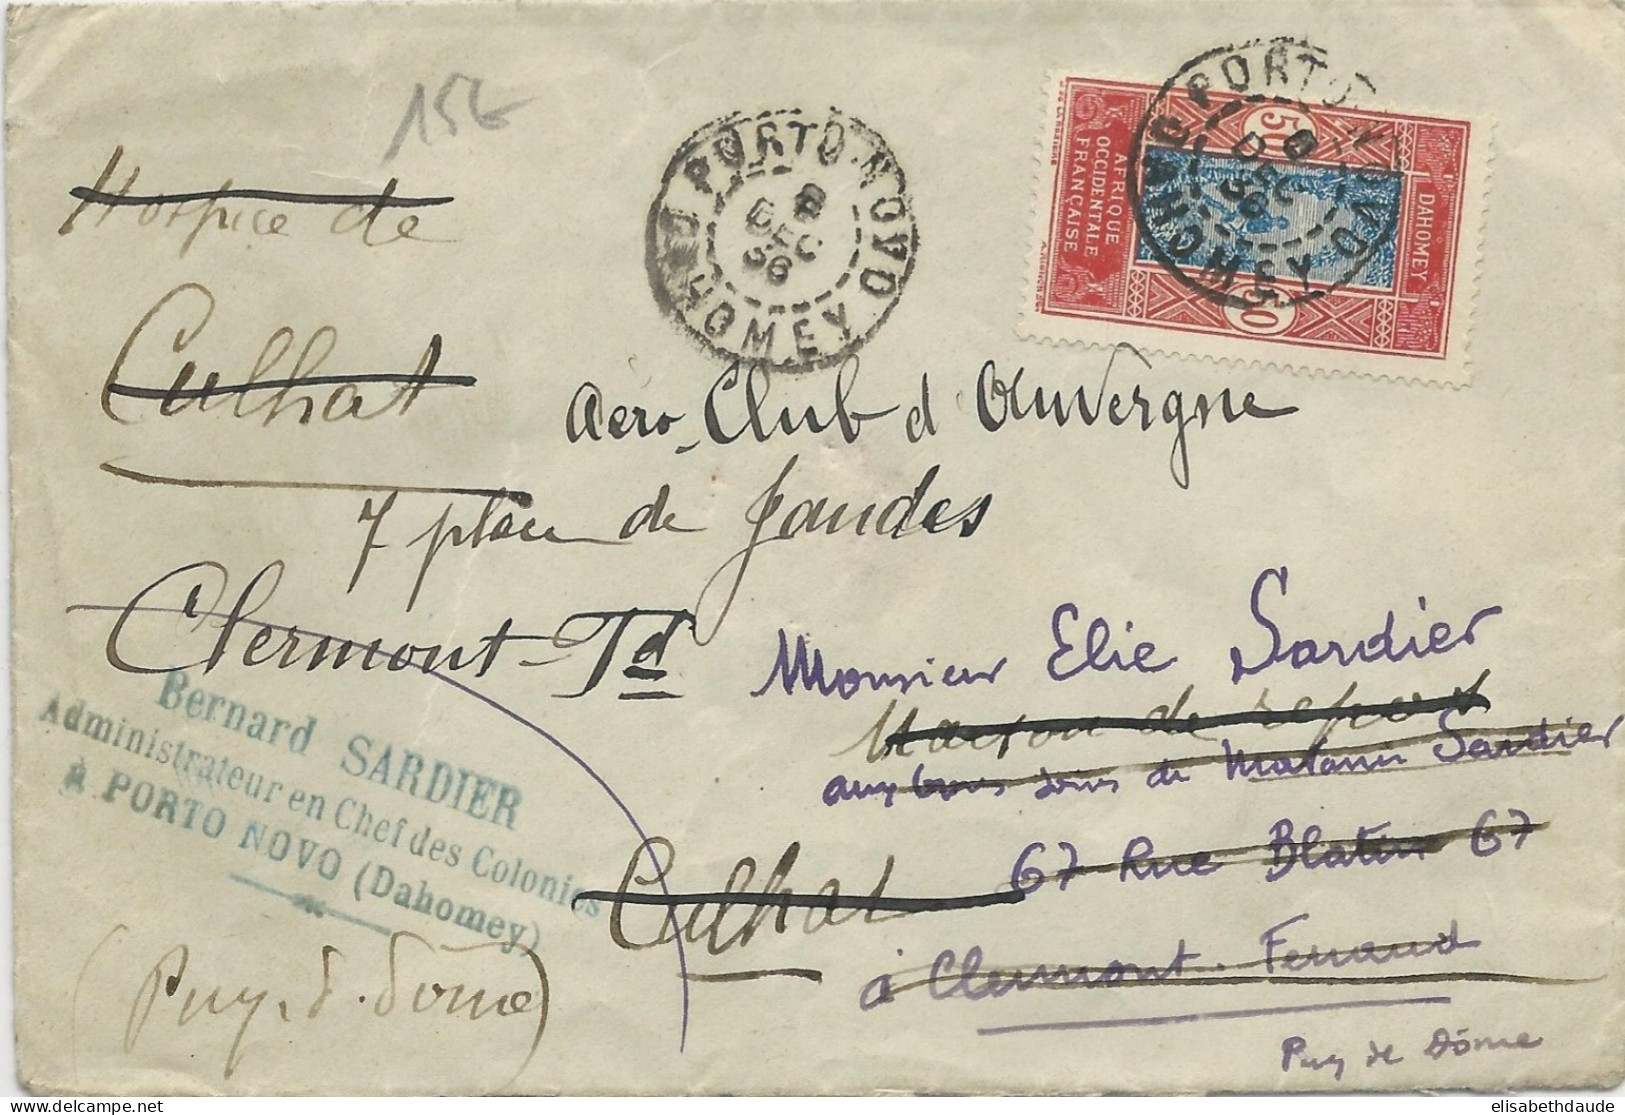 15€
PORTO-NOVO
8
DEC
36
DAHOMEY
PORTO-NOVO
8
DEC
36
DAHOMEY
50
AFRIQUE
OCCIDENTALE
FRANÇAISE
DAHOMEY
50
Hospice de
Culhat
Aero-Club d'Auvergne
7 place de Jaudes
Clermont-Fd
Monsieur Elie Sardier
Maison de repos
aux bons soins de Madame Sardier
67 Rue Blatin 67
Culhat
à Clermont-Ferrand
Puy de Dôme
Bernard SARDIER
Administrateur en Chef des Colonies
à PORTO NOVO (Dahomey)
(Puy-d-Dôme)
elisabethdaude